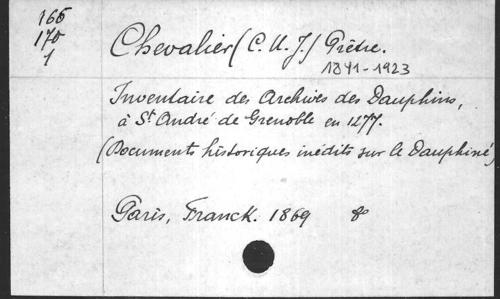 166
170
1
Chevalier (C. U. J.) Prêtre.
1841-1923
Inventaire des Archives des Dauphins,
à St. André de Grenoble en 1277.
(Documents historiques inédits sur le Dauphiné)
Paris, Franck. 1869 8°